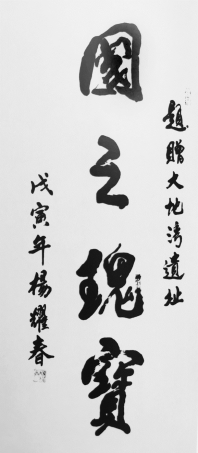 題贈大地湾遺址
國之瑰寶
戊寅年楊耀春